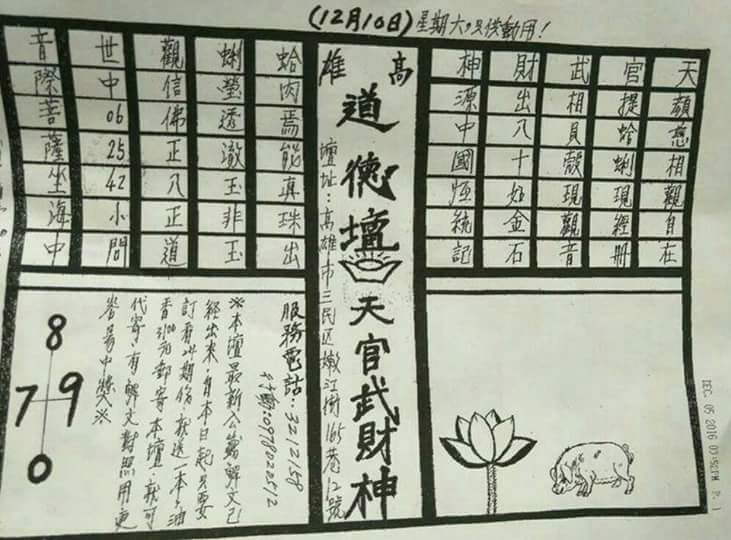 (12月10日)星期六只供動用!
天顏慈相親自在
官提蛤蜊現經冊
武相貝殼現觀音
財出八十如金石
神源中國恆統記
高雄
道德壇
天官武財神
壇址:高雄市三民区嫩江街165巷12號
蛤肉焉能真珠出
蜊瑩透澈玉非玉
觀信佛正八正道
世中062542小問
音際菩薩坐海中
服務電話:3212158
行動:0978022512
※本壇最新公籤解文已
經出來,自本日起只要
訂看24期份,就送一本,油
香3100元郵寄本壇,就可
代寄,有解文對照用更
容易中獎※
8
7 9
0
DEC. 05 2016 07:52PM P. 1